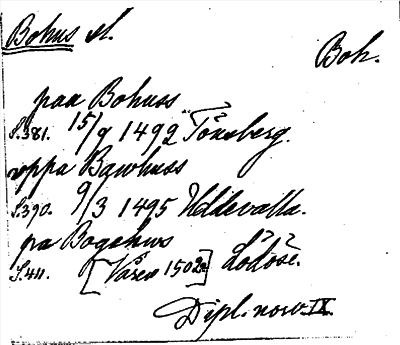 Bohus sl.
Boh.
paa Bohuss
S.381. 15/9 1492 Tönsberg.
vppa Bawhuss
S.390. 9/3 1495 Uddevalla.
pa Bogahws
S.411. [Våren 1502] Lödöse.
Dipl. norv. IX.